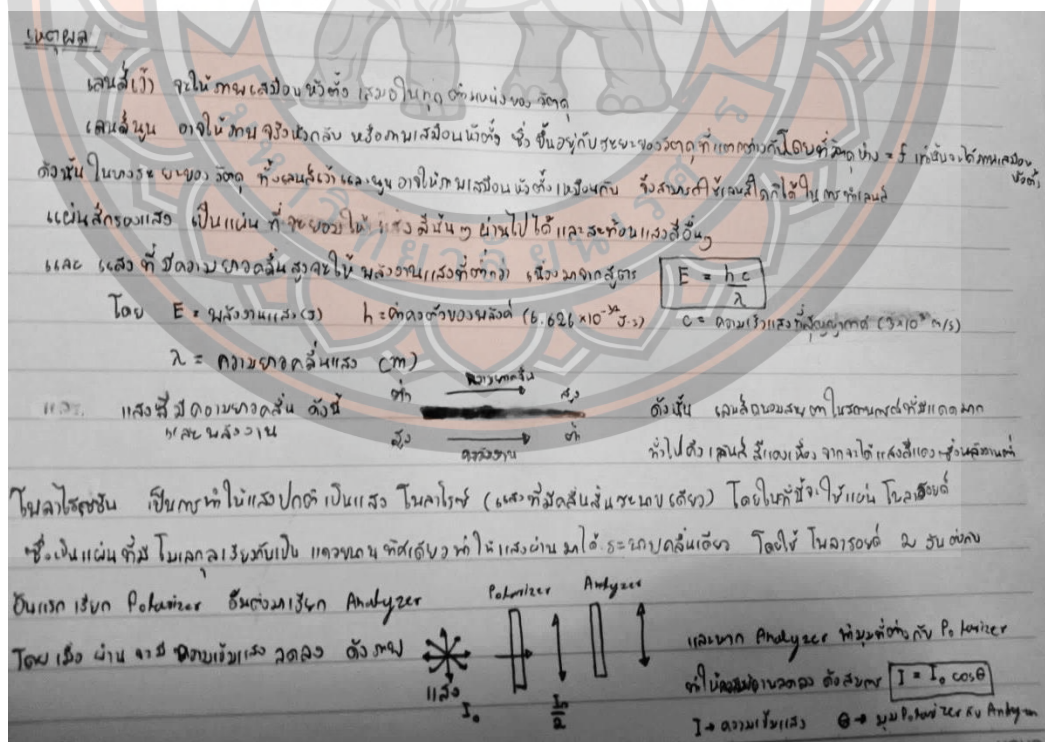 เหตุผล
เลนส์เว้า จะให้ภาพเสมือนหัวตั้ง เสมอในทุกตำแหน่งของวัตถุ
เลนส์นูน อาจให้ภาพจริงหัวกลับ หรือภาพเสมือนหัวตั้ง ซึ่งขึ้นอยู่กับระยะของวัตถุที่แตกต่างกันโดยที่วัตถุห่าง = f เท่านั้นจะได้ภาพเสมือนหัวตั้ง
ดังนั้น ในบางระยะของวัตถุ ทั้งเลนส์เว้าและนูนอาจให้ภาพเสมือนหัวตั้งเหมือนกัน จึงสามารถใช้เลนส์ใดก็ได้ในการทำเลนส์
แผ่นสีกรองแสง เป็นแผ่นที่จะยอมให้แสงสีนั้นๆ ผ่านไปได้และสะท้อนแสงสีอื่นๆ
และ แสงที่มีความยาวคลื่นสูงจะให้พลังงานแสงที่ต่ำกว่า เนื่องมาจากสูตร E = hc/λ
โดย E = พลังงานแสง (J) h = ค่าคงตัวของพลังค์ (6.626×10⁻³⁴ J·s) c = ความเร็วแสงที่สุญญากาศ (3×10⁸ m/s)
λ = ความยาวคลื่นแสง (m)
ความยาวคลื่น
ต่ำ สูง
แสงสีมีความยาวคลื่น ดังนี้
และพลังงาน
สูง ต่ำ
พลังงาน
ดังนั้น เลนส์ถนอมสายตาในสถานการณ์ที่มีแดดมาก
ทั่วไปคือเลนส์สีแดงเนื่องจากจะได้แสงสีแดงซึ่งพลังงานต่ำ
โพลาไรเซชัน เป็นการทำให้แสงปกติเป็นแสงโพลาไรซ์ (แสงที่มีคลื่นสั่นระนาบเดียว) โดยในที่นี้จะใช้แผ่นโพลารอยด์
ซึ่งเป็นแผ่นที่มีโมเลกุลเรียงกันเป็นแถวขนานทิศเดียวทำให้แสงผ่านมาได้ระนาบคลื่นเดียว โดยใช้โพลารอยด์ 2 อันต่อกัน
อันแรกเรียก Polarizer อันต่อมาเรียก Analyzer
โดยเมื่อผ่านจะมีความเข้มแสงลดลง ดังภาพ
Polarizer Analyzer
แสง
I₀ I₀/2
และหาก Analyzer ทำมุมที่ต่างกับ Polarizer
ทำให้ลดลง ดังสมการ I = I₀ cosθ
I → ความเข้มแสง θ → มุม Polarizer กับ Analyzer